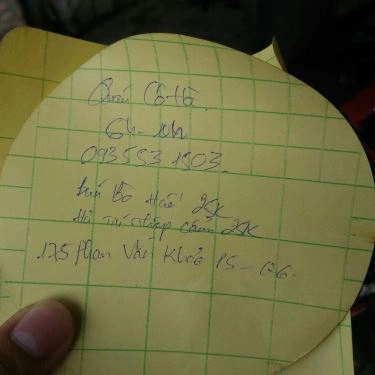 Quán Cô Hà.
6h - 10h
093553 1503.
Bún Bò Huế 25K
Hủ Tiếu 25K
175 Phan Văn Khoẻ P5 - Q6.